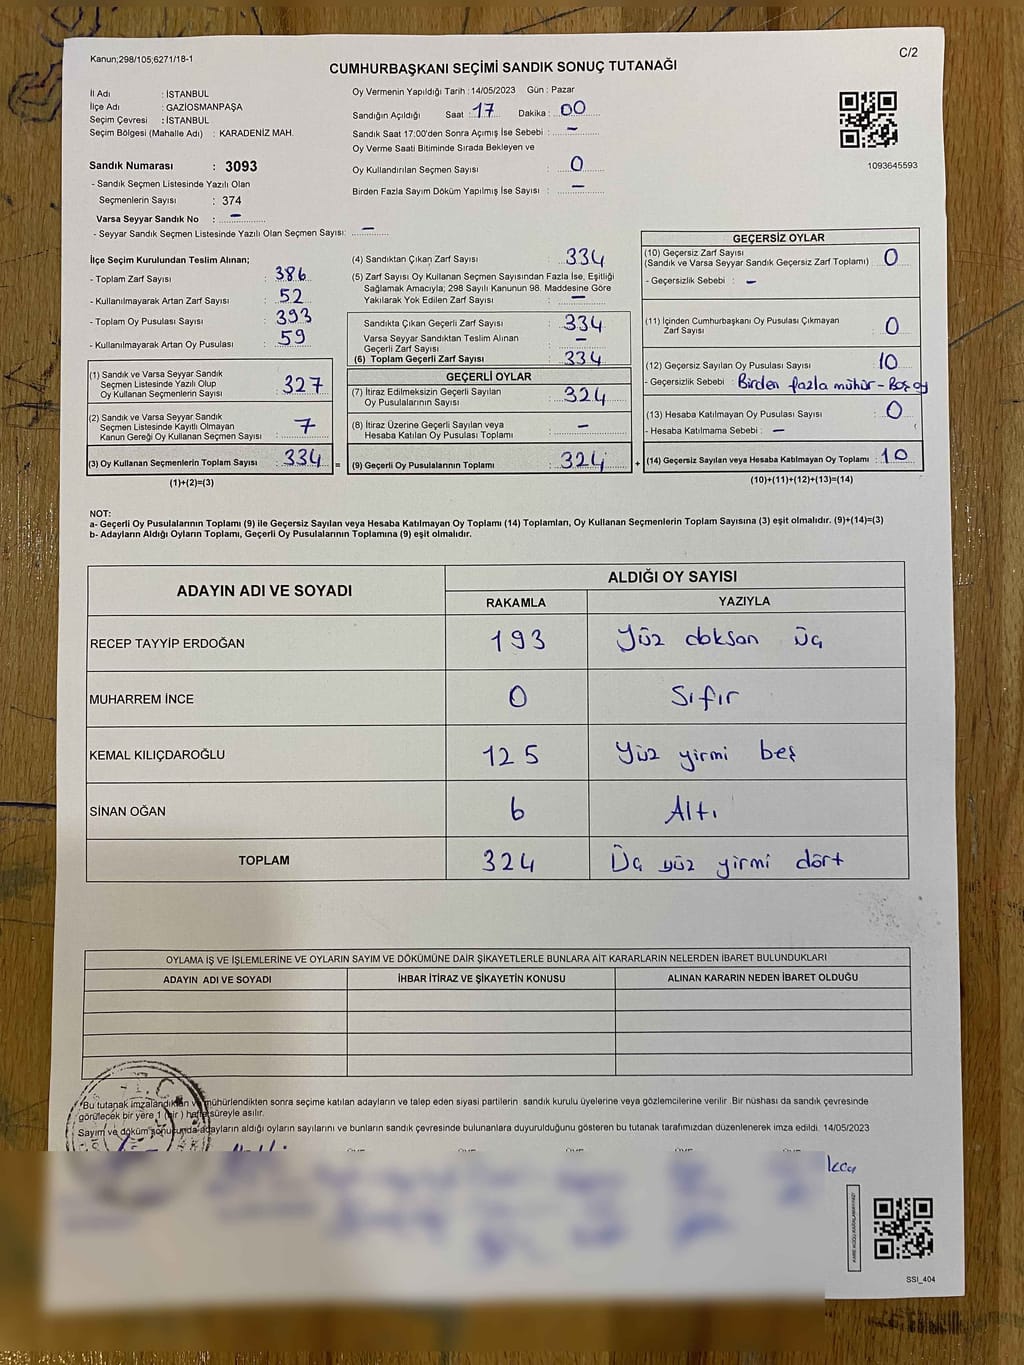 Kanun;298/105;6271/18-1
C/2
CUMHURBAŞKANI SEÇİMİ SANDIK SONUÇ TUTANAĞI
İl Adı : İSTANBUL
İlçe Adı : GAZİOSMANPAŞA
Seçim Çevresi : İSTANBUL
Seçim Bölgesi (Mahalle Adı) : KARADENİZ MAH.
Sandık Numarası : 3093
- Sandık Seçmen Listesinde Yazılı Olan
Seçmenlerin Sayısı : 374
Varsa Seyyar Sandık No : –
- Seyyar Sandık Seçmen Listesinde Yazılı Olan Seçmen Sayısı: –
Oy Vermenin Yapıldığı Tarih : 14/05/2023 Gün : Pazar
Sandığın Açıldığı Saat : 17 Dakika : 00
Sandık Saat 17:00'den Sonra Açımış İse Sebebi : –
Oy Verme Saati Bitiminde Sırada Bekleyen ve
Oy Kullandırılan Seçmen Sayısı : 0
Birden Fazla Sayım Döküm Yapılmış İse Sayısı : –
1093645593
İlçe Seçim Kurulundan Teslim Alınan;
- Toplam Zarf Sayısı : 386
- Kullanılmayarak Artan Zarf Sayısı : 52
- Toplam Oy Pusulası Sayısı : 393
- Kullanılmayarak Artan Oy Pusulası : 59
(1) Sandık ve Varsa Seyyar Sandık
Seçmen Listesinde Yazılı Olup
Oy Kullanan Seçmenlerin Sayısı : 327
(2) Sandık ve Varsa Seyyar Sandık
Seçmen Listesinde Kayıtlı Olmayan
Kanun Gereği Oy Kullanan Seçmen Sayısı : 7
(3) Oy Kullanan Seçmenlerin Toplam Sayısı : 334
(1)+(2)=(3)
(4) Sandıktan Çıkan Zarf Sayısı : 334
(5) Zarf Sayısı Oy Kullanan Seçmen Sayısından Fazla İse, Eşitliği
Sağlamak Amacıyla; 298 Sayılı Kanunun 98. Maddesine Göre
Yakılarak Yok Edilen Zarf Sayısı : –
Sandıkta Çıkan Geçerli Zarf Sayısı : 334
Varsa Seyyar Sandıktan Teslim Alınan
Geçerli Zarf Sayısı : –
(6) Toplam Geçerli Zarf Sayısı : 334
GEÇERLİ OYLAR
(7) İtiraz Edilmeksizin Geçerli Sayılan
Oy Pusulalarının Sayısı : 324
(8) İtiraz Üzerine Geçerli Sayılan veya
Hesaba Katılan Oy Pusulası Toplamı : –
= (9) Geçerli Oy Pusulalarının Toplamı : 324 +
GEÇERSİZ OYLAR
(10) Geçersiz Zarf Sayısı
(Sandık ve Varsa Seyyar Sandık Geçersiz Zarf Toplamı) : 0
- Geçersizlik Sebebi : –
(11) İçinden Cumhurbaşkanı Oy Pusulası Çıkmayan
Zarf Sayısı : 0
(12) Geçersiz Sayılan Oy Pusulası Sayısı : 10
- Geçersizlik Sebebi : Birden fazla mühür - Boş oy
(13) Hesaba Katılmayan Oy Pusulası Sayısı : 0
- Hesaba Katılmama Sebebi : –
(14) Geçersiz Sayılan veya Hesaba Katılmayan Oy Toplamı : 10
(10)+(11)+(12)+(13)=(14)
NOT:
a- Geçerli Oy Pusulalarının Toplamı (9) ile Geçersiz Sayılan veya Hesaba Katılmayan Oy Toplamı (14) Toplamları, Oy Kullanan Seçmenlerin Toplam Sayısına (3) eşit olmalıdır. (9)+(14)=(3)
b- Adayların Aldığı Oyların Toplamı, Geçerli Oy Pusulalarının Toplamına (9) eşit olmalıdır.
ADAYIN ADI VE SOYADI
ALDIĞI OY SAYISI
RAKAMLA YAZIYLA
RECEP TAYYİP ERDOĞAN 193 Yüz doksan üç
MUHARREM İNCE 0 Sıfır
KEMAL KILIÇDAROĞLU 125 Yüz yirmi beş
SİNAN OĞAN 6 Altı
TOPLAM 324 Üç yüz yirmi dört
OYLAMA İŞ VE İŞLEMLERİNE VE OYLARIN SAYIM VE DÖKÜMÜNE DAİR ŞİKAYETLERLE BUNLARA AİT KARARLARIN NELERDEN İBARET BULUNDUKLARI
ADAYIN ADI VE SOYADI İHBAR İTİRAZ VE ŞİKAYETİN KONUSU ALINAN KARARIN NEDEN İBARET OLDUĞU
Bu tutanak imzalandıktan ve mühürlendikten sonra seçime katılan adayların ve talep eden siyasi partilerin sandık kurulu üyelerine veya gözlemcilerine verilir .Bir nüshası da sandık çevresinde
görülecek bir yere 1 (bir ) hafta süreyle asılır.
Sayım ve döküm sonucunda adayların aldığı oyların sayılarını ve bunların sandık çevresinde bulunanlara duyurulduğunu gösteren bu tutanak tarafımızdan düzenlenerek imza edildi. 14/05/2023
SSI_404